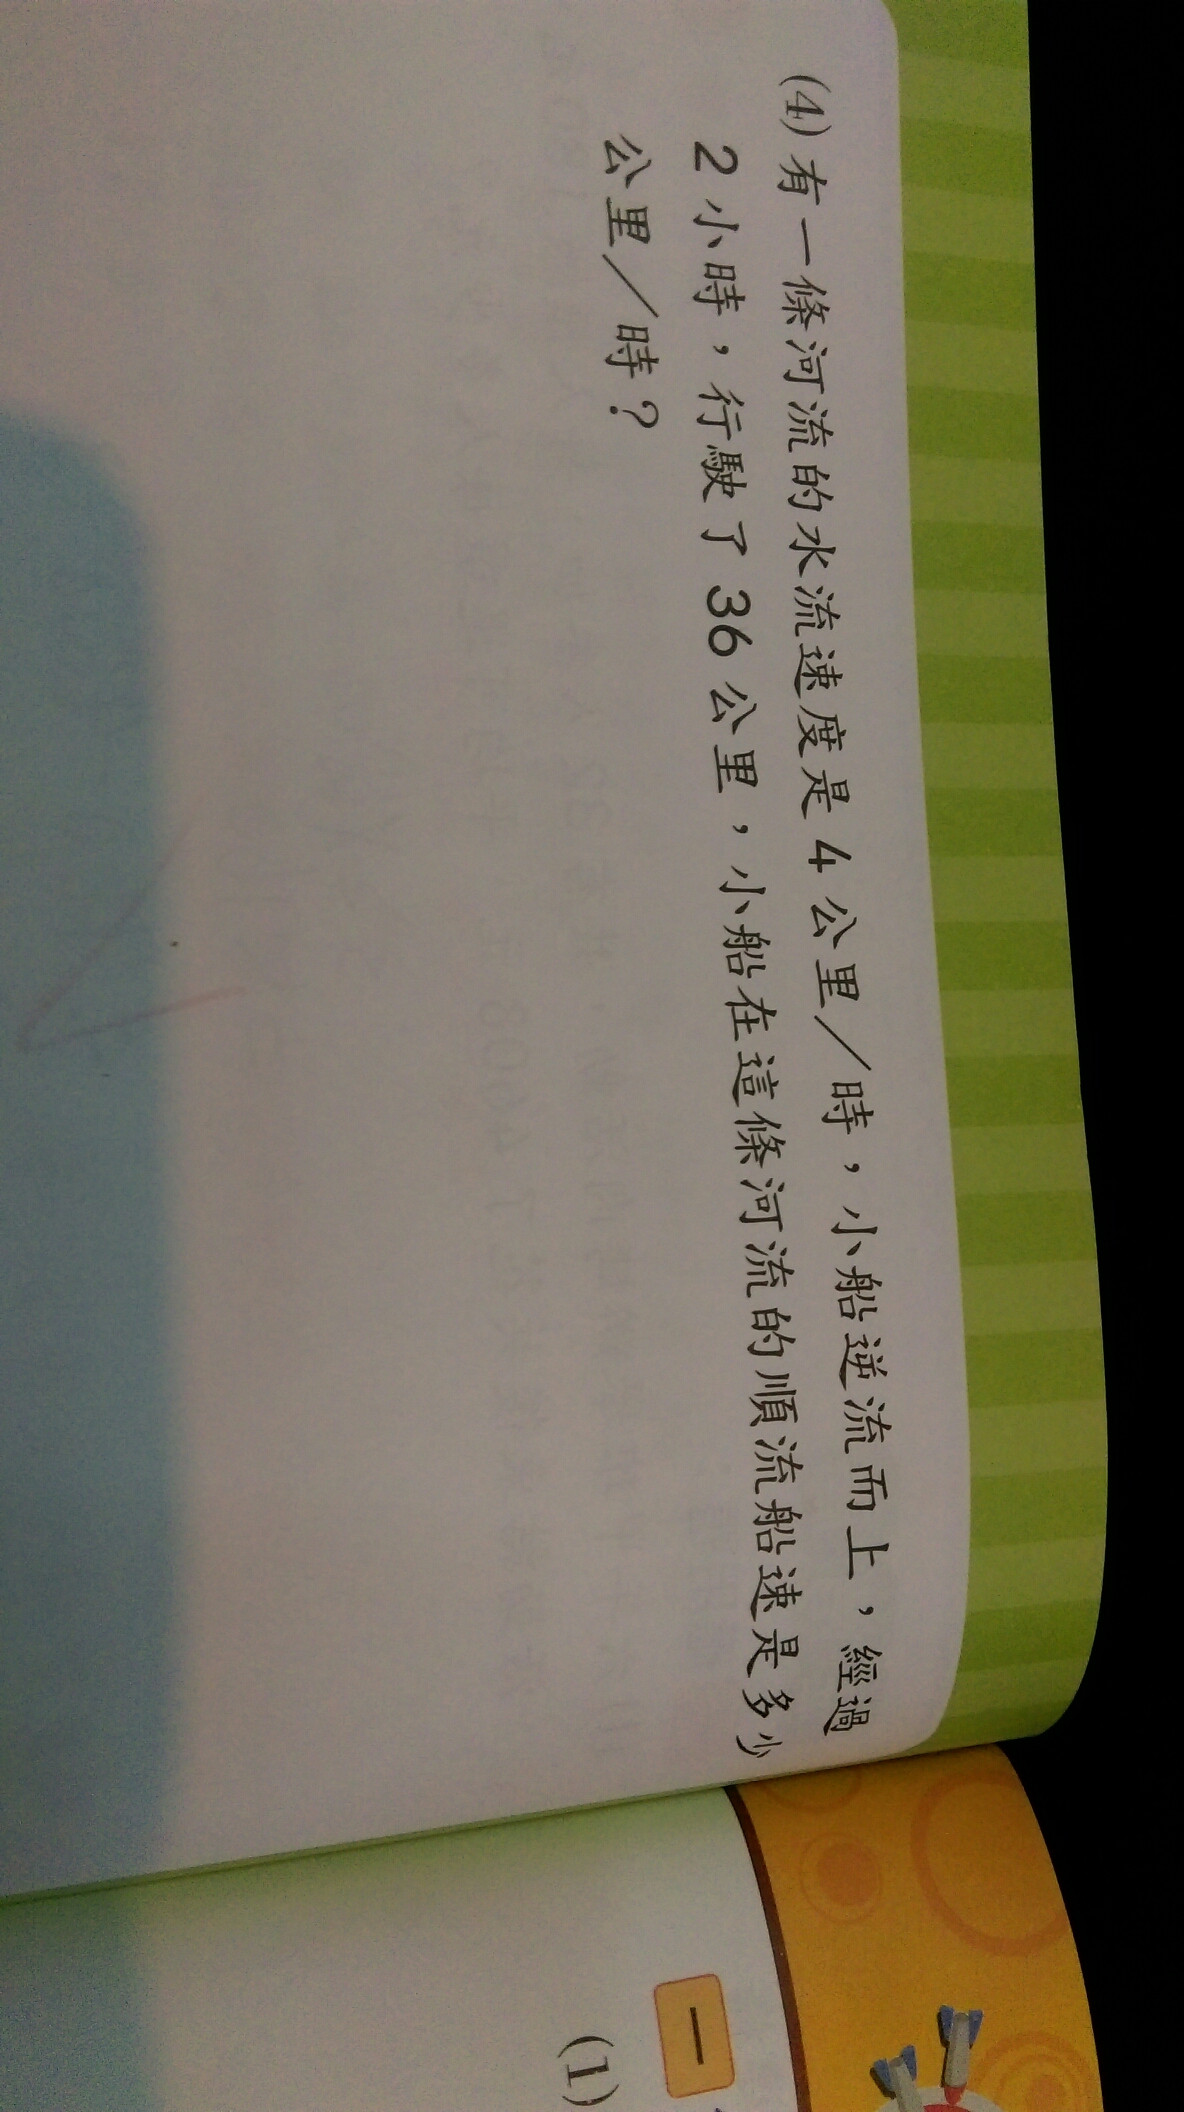 (4) 有一條河流的水流速度是 4 公里／時，小船逆流而上，經過
2 小時，行駛了 36 公里，小船在這條河流的順流船速是多少
公里／時？
一
(1)